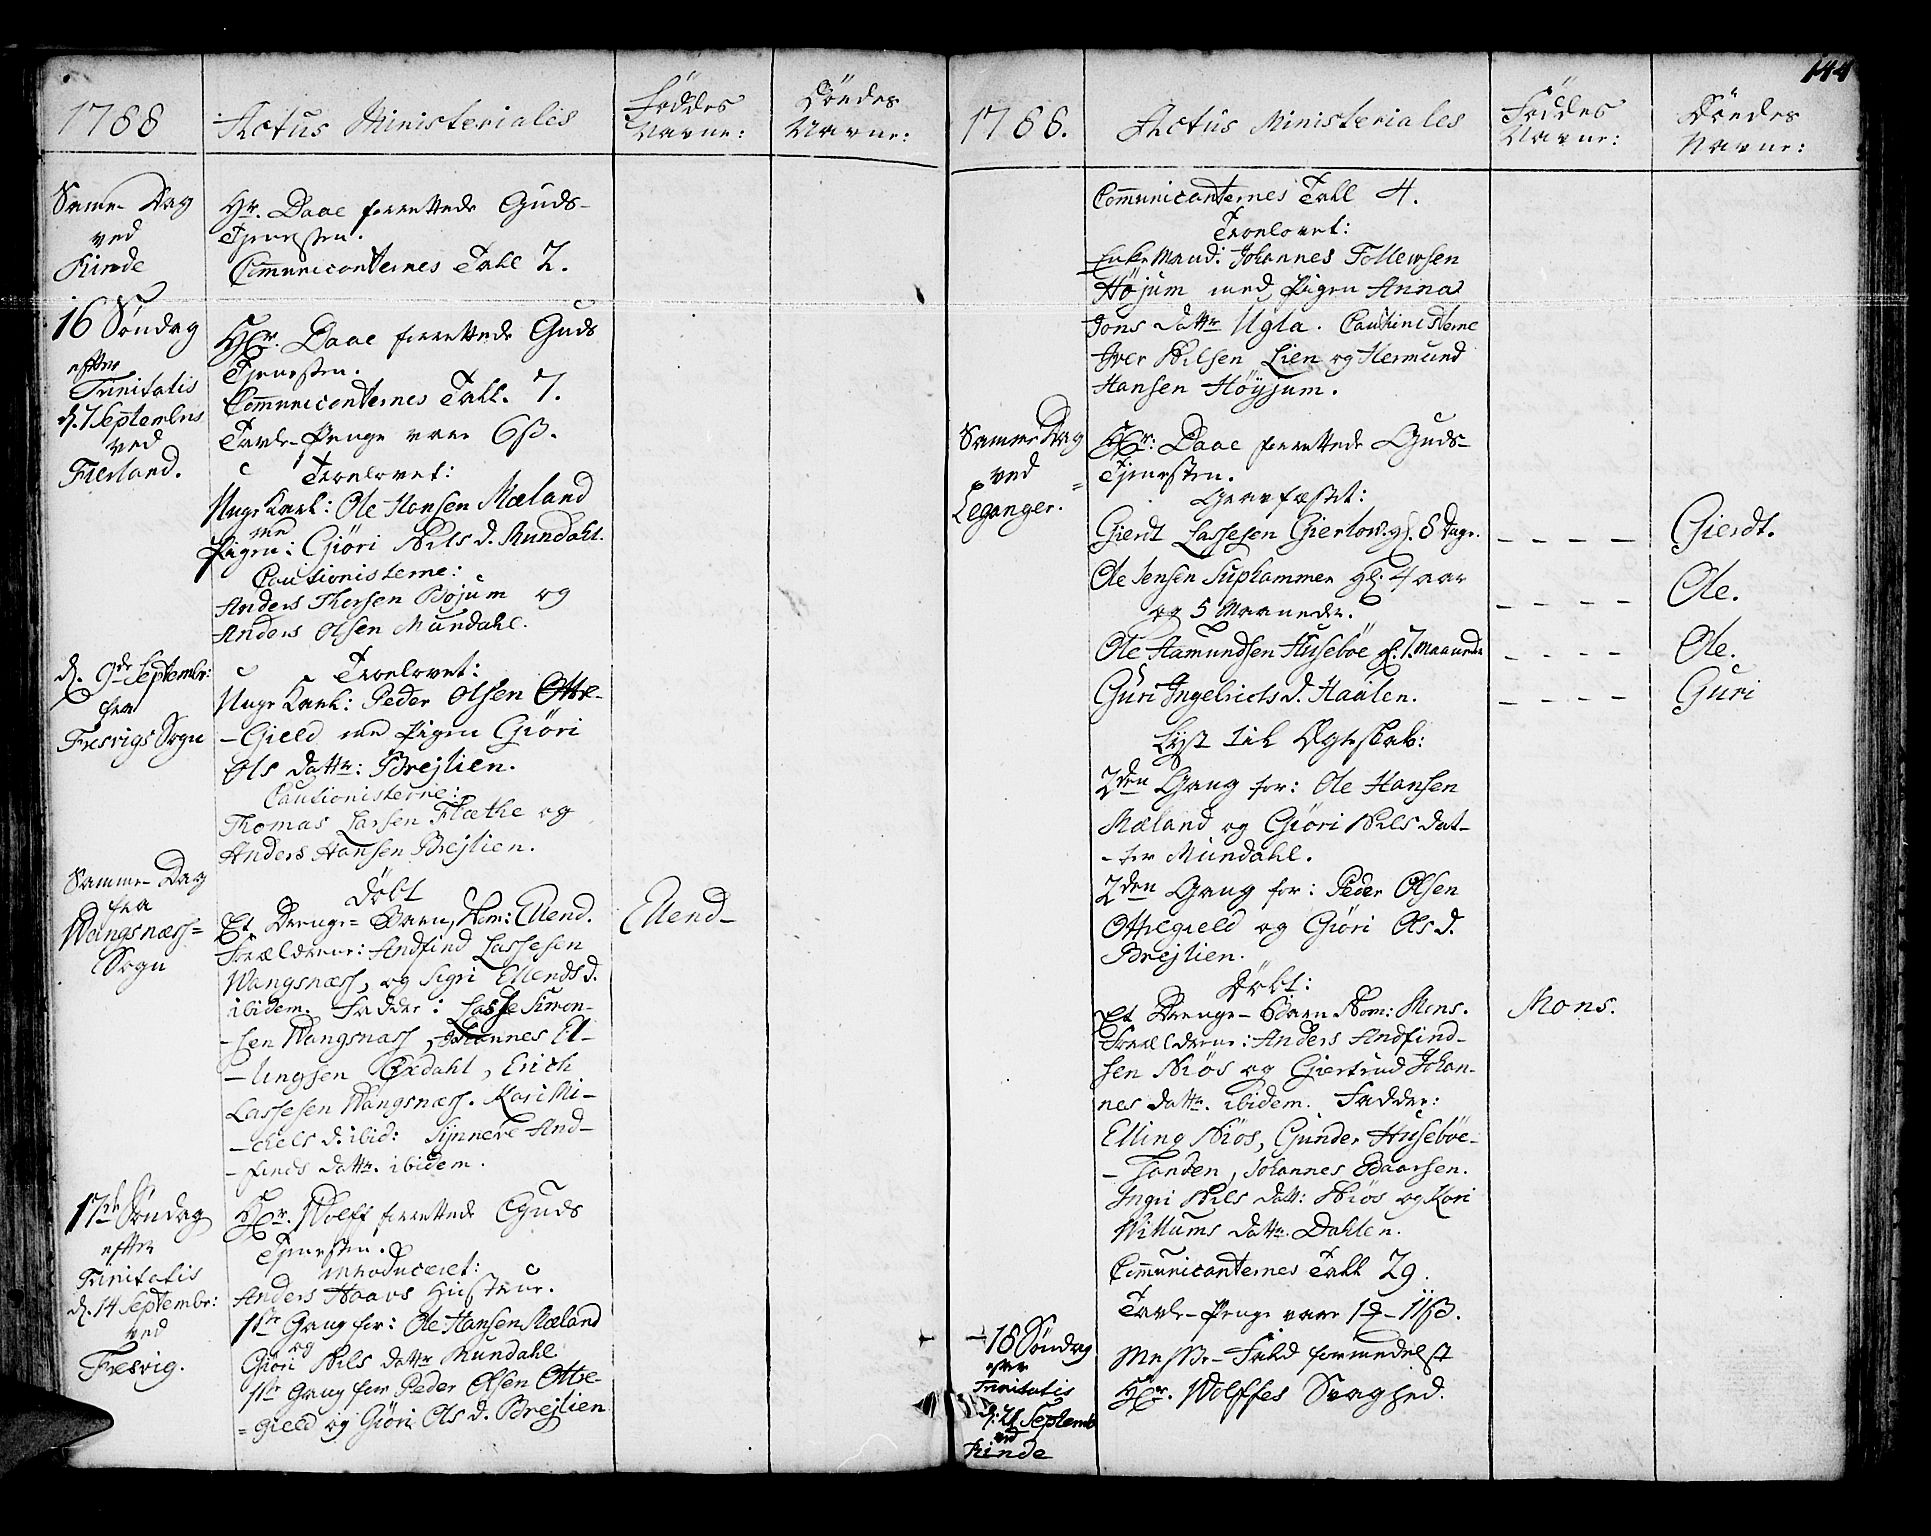 1788
Actus Ministeriales
Föddes
Navne:
Döedes
Navne:
Samme Dag
ved
Rinde
Hr. Daae forrettede Guds-
Tjenesten.
Com̄unicanternes Tall 2.
16 Søndag
efter
Trinitatis
d. 7 Septembris
ved
Fierland.
Hr. Daae forrettede Guds
Tjenesten.
Com̄unicanternes Tall. 7.
Tavle-Penge vare 6 ß.
Trolovet:
Unge Karl: Ole Hansen Mæland
me
Pigen: Giöri Nils d. Mundahl.
Cautionisterne:
Anders Thersen Böjum og
Anders Olsen Mundahl.
d. 9de Septembr:
fra
Fresvigs Sogn
Trolovet:
Unge Karl: Peder Olsen Otte-
-Gield me Pigen Giöri
Ols datter: Brejlien.
Cautionisterne:
Thomas Larsen Flæthe og
Anders Hansen Brejlien.
Samme Dag
fra
Wangsnæss=
Sogn
Döbt
Et Drenge-Barn, Nom: Ellend.
Ellend-
Forældrene: Andfind Lassesen
Wangsnæss, og Sigri Ellends d.
ibidem. Fadder: Lasse Simon-
-sen Wangsnæss, Johannes El-
-lingsen Öxdahl, Erich
Lassesen Wangsnæss. Kari Mi-
-chels d. ibid: Synneve And-
-finds datter. ibidem.
17de Søndag
efter
Trinitatis
d. 14 Septembr:
ved
Fresvig.
Hr. Wolff forrettede Guds
Tjenesten.
introduceret:
Anders Haavs Hustrue.
1ste Gang for: Ole Hansen Mæland
og
Giöri Nils datter Mundahl
1ste Gang for Peder Olsen Otte-
=gield og Giöri Ols d. Brejlien
144
1788.
Actus Ministeriales
Föddes
Navne:
Döedes
Navne:
Com̄unicanternes Tall 4.
Trolovet:
Enke Mand: Johannes Tollewsen
Höjum med Pigen Anna
Jons datter Ugla. Cautinisterne
Iver Nilsen Lien og Hermund
Hansen Höyjum.
Samme Dag
ved
Leganger.
Hr: Daae forrettede Guds-
Tjenesten.
Gravfæstet:
Gierdt Lassesen Gierlow. gl. 8 Dage.
Gierdt.
Ole Jensen Suphammer gl: 4 aar
og 5 Maaneder.
Ole.
Ole Hamundsen Husebøe gl. 7. Maaneder
Ole.
Guri Ingebricts d. Haalen.
Guri
Lyst til Ægteskab:
2den Gang for: Ole Hansen
Mæland og Giöri Nils dat-
-ter Mundahl.
2den Gang for: Peder Olsen
Ottregield og Giöri Ols d.
Brejlien.
Döbt:
Et Drenge-Barn Nom: Mons.
Mons.
Forældrene: Anders Andfind-
sen Niøs og Giertrud Johan-
nes datter. ibidem. Fadder:
Elling Niös, Gunder Husebøe-
-Tanden, Johannes Edvarsen.
Ingri Nils datt: Niøs og Kari
Willums datter. Dahlen.
Com̄unicanternes Tall 29.
Tavle-Penge vare
18 Søndag
efter
Trinitatis
d: 21 Septemb
ved
Rinde
Messe-Fald formedelst
Hr. Wolffes Svaghed.